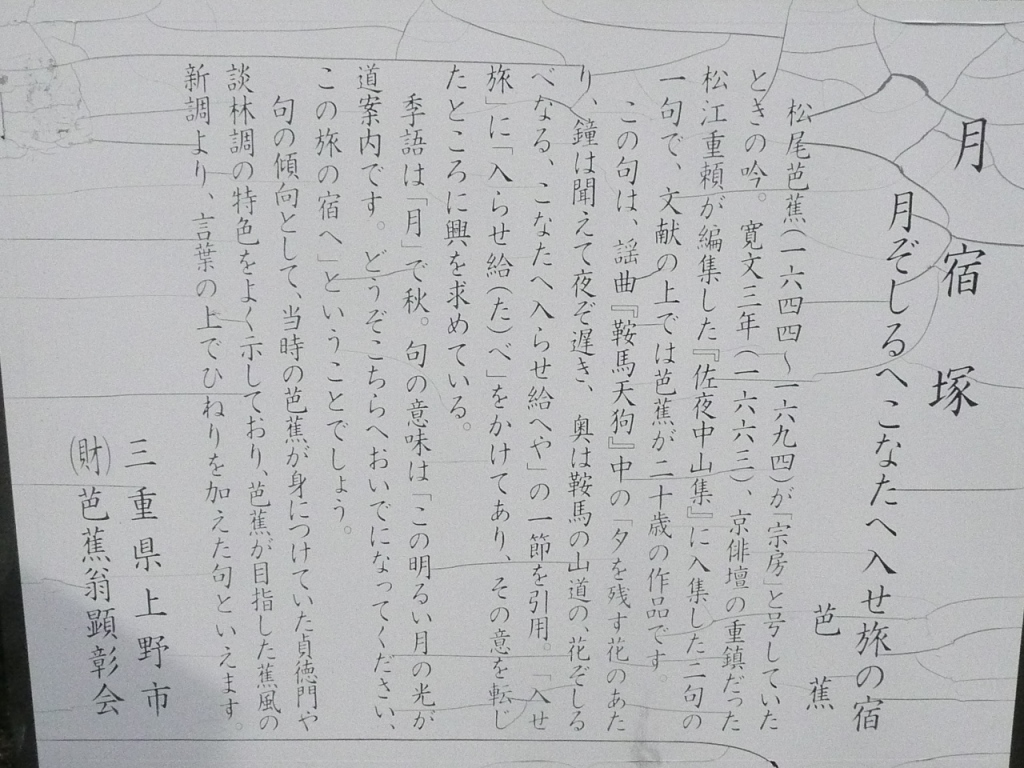 月宿塚
月ぞしるべこなたへ入せ旅の宿
芭蕉
松尾芭蕉(一六四四～一六九四)が「宗房」と号していた
ときの吟。寛文三年(一六六三)、京俳壇の重鎮だった
松江重頼が編集した『佐夜中山集』に入集した二句の
一句で、文献の上では芭蕉が二十歳の作品です。
この句は、謡曲『鞍馬天狗』中の「夕を残す花のあた
り、鐘は聞えて夜ぞ遅き、奥は鞍馬の山道の、花ぞしる
べなる、こなたへ入らせ給へや」の一節を引用。「入せ
旅」に「入らせ給(た)べ」をかけてあり、その意を転じ
たところに興を求めている。
季語は「月」で秋。句の意味は「この明るい月の光が
道案内です。どうぞこちらへおいでになってください、
この旅の宿へ」ということでしょう。
句の傾向として、当時の芭蕉が身につけていた貞徳門や
談林調の特色をよく示しており、芭蕉が目指した蕉風の
新調より、言葉の上でひねりを加えた句といえます。
三重県上野市
(財)芭蕉翁顕彰会